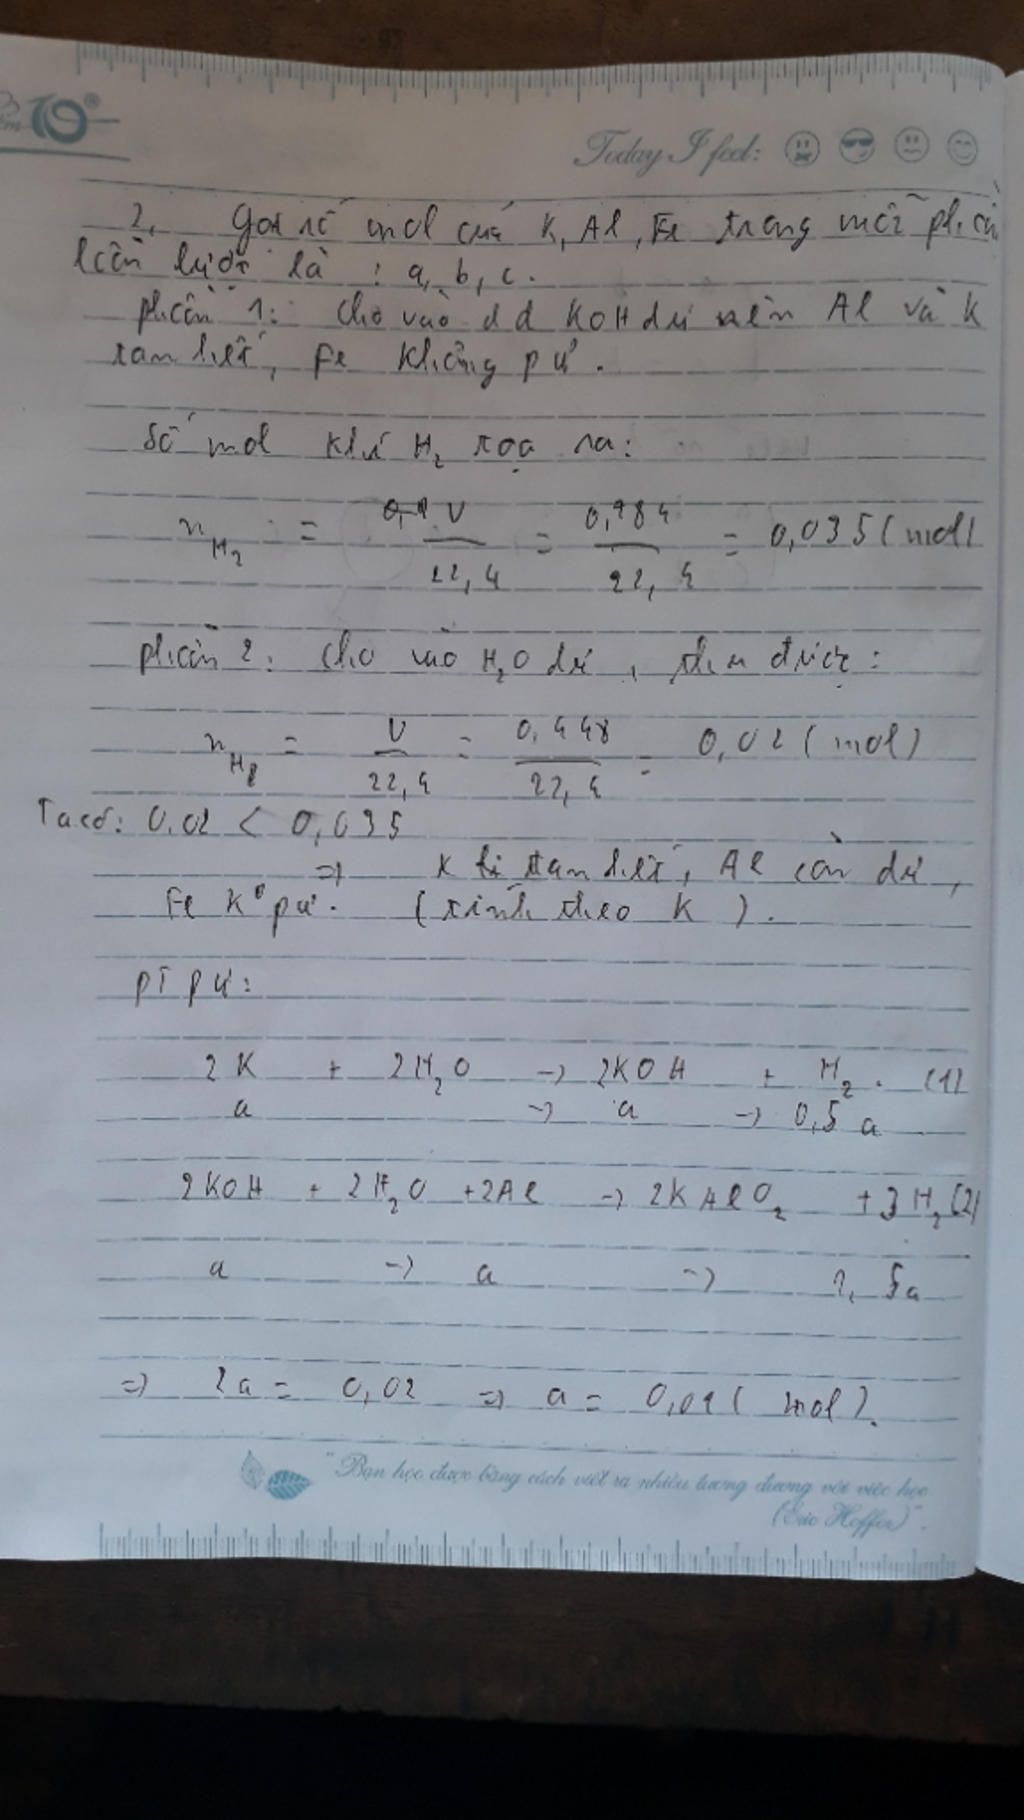 10
Today I feel:
2, Gọi số mol của K, Al, Fe trong mỗi phần
lần lượt là : a, b, c.
phần 1: cho vào dd KOH dư nên Al và K
tan hết, Fe không pư.
Số mol khí H2 thoát ra:
nH2 = V / 22,4 = 0,784 / 22,4 = 0,035 (mol)
phần 2: cho vào H2O dư, thu được:
nH2 = V / 22,4 = 0,448 / 22,4 = 0,02 (mol)
Ta có: 0,02 < 0,035
=> K bị tan hết, Al còn dư,
Fe k° pư. (tính theo K).
PT pư:
2K + 2H2O -> 2KOH + H2. (1)
a -> a -> 0,5a
2KOH + 2H2O + 2Al -> 2KAlO2 + 3H2 (2)
a -> a -> 1,5a
=> 2a = 0,02 => a = 0,01 (mol).
"Bạn học được bằng cách viết ra nhiều tương đương với việc học
(Eric Hoffer)".